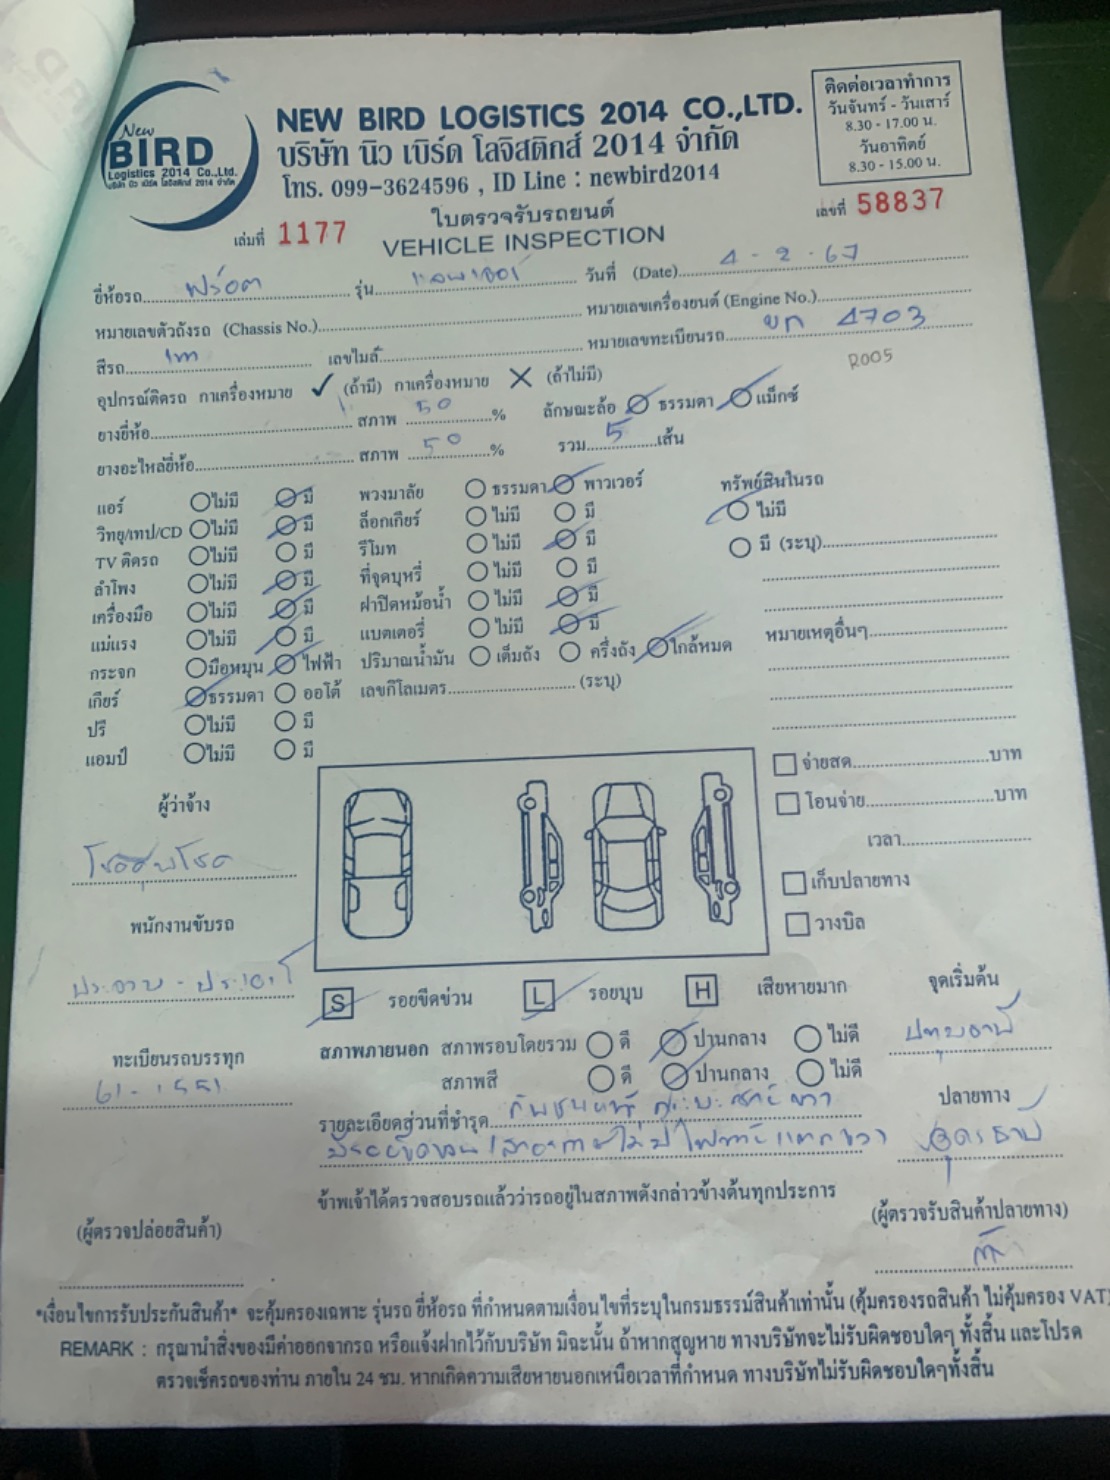 New
BIRD
Logistics 2014 Co.,Ltd.
บริษัท นิว เบิร์ด โลจิสติกส์ 2014 จำกัด
NEW BIRD LOGISTICS 2014 CO.,LTD.
บริษัท นิว เบิร์ด โลจิสติกส์ 2014 จำกัด
โทร. 099-3624596 , ID Line : newbird2014
ติดต่อเวลาทำการ
วันจันทร์ - วันเสาร์
8.30 - 17.00 น.
วันอาทิตย์
8.30 - 15.00 น.
เล่มที่ 1177
ใบตรวจรับรถยนต์
VEHICLE INSPECTION
เลขที่ 58837
ยี่ห้อรถ ฟร์อต รุ่น วันที่ (Date) 4 - 2 - 67
หมายเลขตัวถังรถ (Chassis No.) หมายเลขเครื่องยนต์ (Engine No.)
สีรถ เทา เลขไมล์ หมายเลขทะเบียนรถ ยก 4703
R005
อุปกรณ์ติดรถ กาเครื่องหมาย ✓ (ถ้ามี) กาเครื่องหมาย ✗ (ถ้าไม่มี)
ยางยี่ห้อ สภาพ 50 % ลักษณะล้อ ธรรมดา แม็กซ์
ยางอะไหล่ยี่ห้อ สภาพ 50 % รวม 5 เส้น
แอร์ ไม่มี มี พวงมาลัย ธรรมดา พาวเวอร์ ทรัพย์สินในรถ
วิทยุ/เทป/CD ไม่มี มี ล็อกเกียร์ ไม่มี มี ไม่มี
TV ติดรถ ไม่มี มี รีโมท ไม่มี มี มี (ระบุ)
ลำโพง ไม่มี มี ที่จุดบุหรี่ ไม่มี มี
เครื่องมือ ไม่มี มี ฝาปิดหม้อน้ำ ไม่มี มี
แม่แรง ไม่มี มี แบตเตอรี่ ไม่มี มี หมายเหตุอื่นๆ
กระจก มือหมุน ไฟฟ้า ปริมาณน้ำมัน เต็มถัง ครึ่งถัง ใกล้หมด
เกียร์ ธรรมดา ออโต้ เลขกิโลเมตร (ระบุ)
ปรี ไม่มี มี
แอมป์ ไม่มี มี
จ่ายสด บาท
โอนจ่าย บาท
เวลา
เก็บปลายทาง
วางบิล
ผู้ว่าจ้าง
พนักงานขับรถ
ทะเบียนรถบรรทุก
61-1551
S รอยขีดข่วน L รอยบุบ H เสียหายมาก
จุดเริ่มต้น
ปทุมธานี
สภาพภายนอก สภาพรอบโดยรวม ดี ปานกลาง ไม่ดี
สภาพสี ดี ปานกลาง ไม่ดี
ปลายทาง
อุดรธานี
รายละเอียดส่วนที่ชำรุด
ข้าพเจ้าได้ตรวจสอบรถแล้วว่ารถอยู่ในสภาพดังกล่าวข้างต้นทุกประการ
(ผู้ตรวจปล่อยสินค้า)
(ผู้ตรวจรับสินค้าปลายทาง)
*เงื่อนไขการรับประกันสินค้า* จะคุ้มครองเฉพาะ รุ่นรถ ยี่ห้อรถ ที่กำหนดตามเงื่อนไขที่ระบุในกรมธรรม์สินค้าเท่านั้น (คุ้มครองรถสินค้า ไม่คุ้มครอง VAT)
REMARK : กรุณานำสิ่งของมีค่าออกจากรถ หรือแจ้งฝากไว้กับบริษัท มิฉะนั้น ถ้าหากสูญหาย ทางบริษัทจะไม่รับผิดชอบใดๆ ทั้งสิ้น และโปรด
ตรวจเช็ครถของท่าน ภายใน 24 ชม. หากเกิดความเสียหายนอกเหนือเวลาที่กำหนด ทางบริษัทไม่รับผิดชอบใดๆทั้งสิ้น